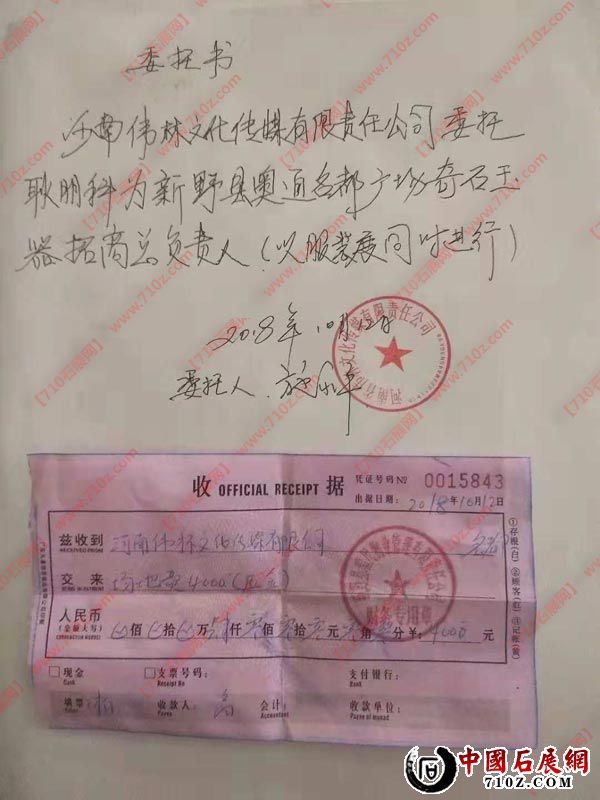 委托书
河南伟林文化传媒有限责任公司委托
耿朋科为新野县奥通名都广场奇石玉
器招商总负责人(以服装展同时进行)
2018年10月12日
委托人
文化传媒有限责任公司
收 OFFICIAL RECEIPT 据
凭证号码 № 0015843
出据日期: 2018年10月12日
兹收到 河南伟林文化传媒有限公司
交来 场地费4000
人民币
(金额大写) 佰 拾 万 仟 佰 拾 元 角 分 ¥: 4000 元
□现金 □支票号码 支付银行:
Cash Receipt No Bank
填票: 收款人 会计: 收款单位:
Payee Accountant
财务专用章
①存根(白) ②顾客(红) ③记账(黄)
【710石展网】www.710z.com
中國石展網
710Z.COM